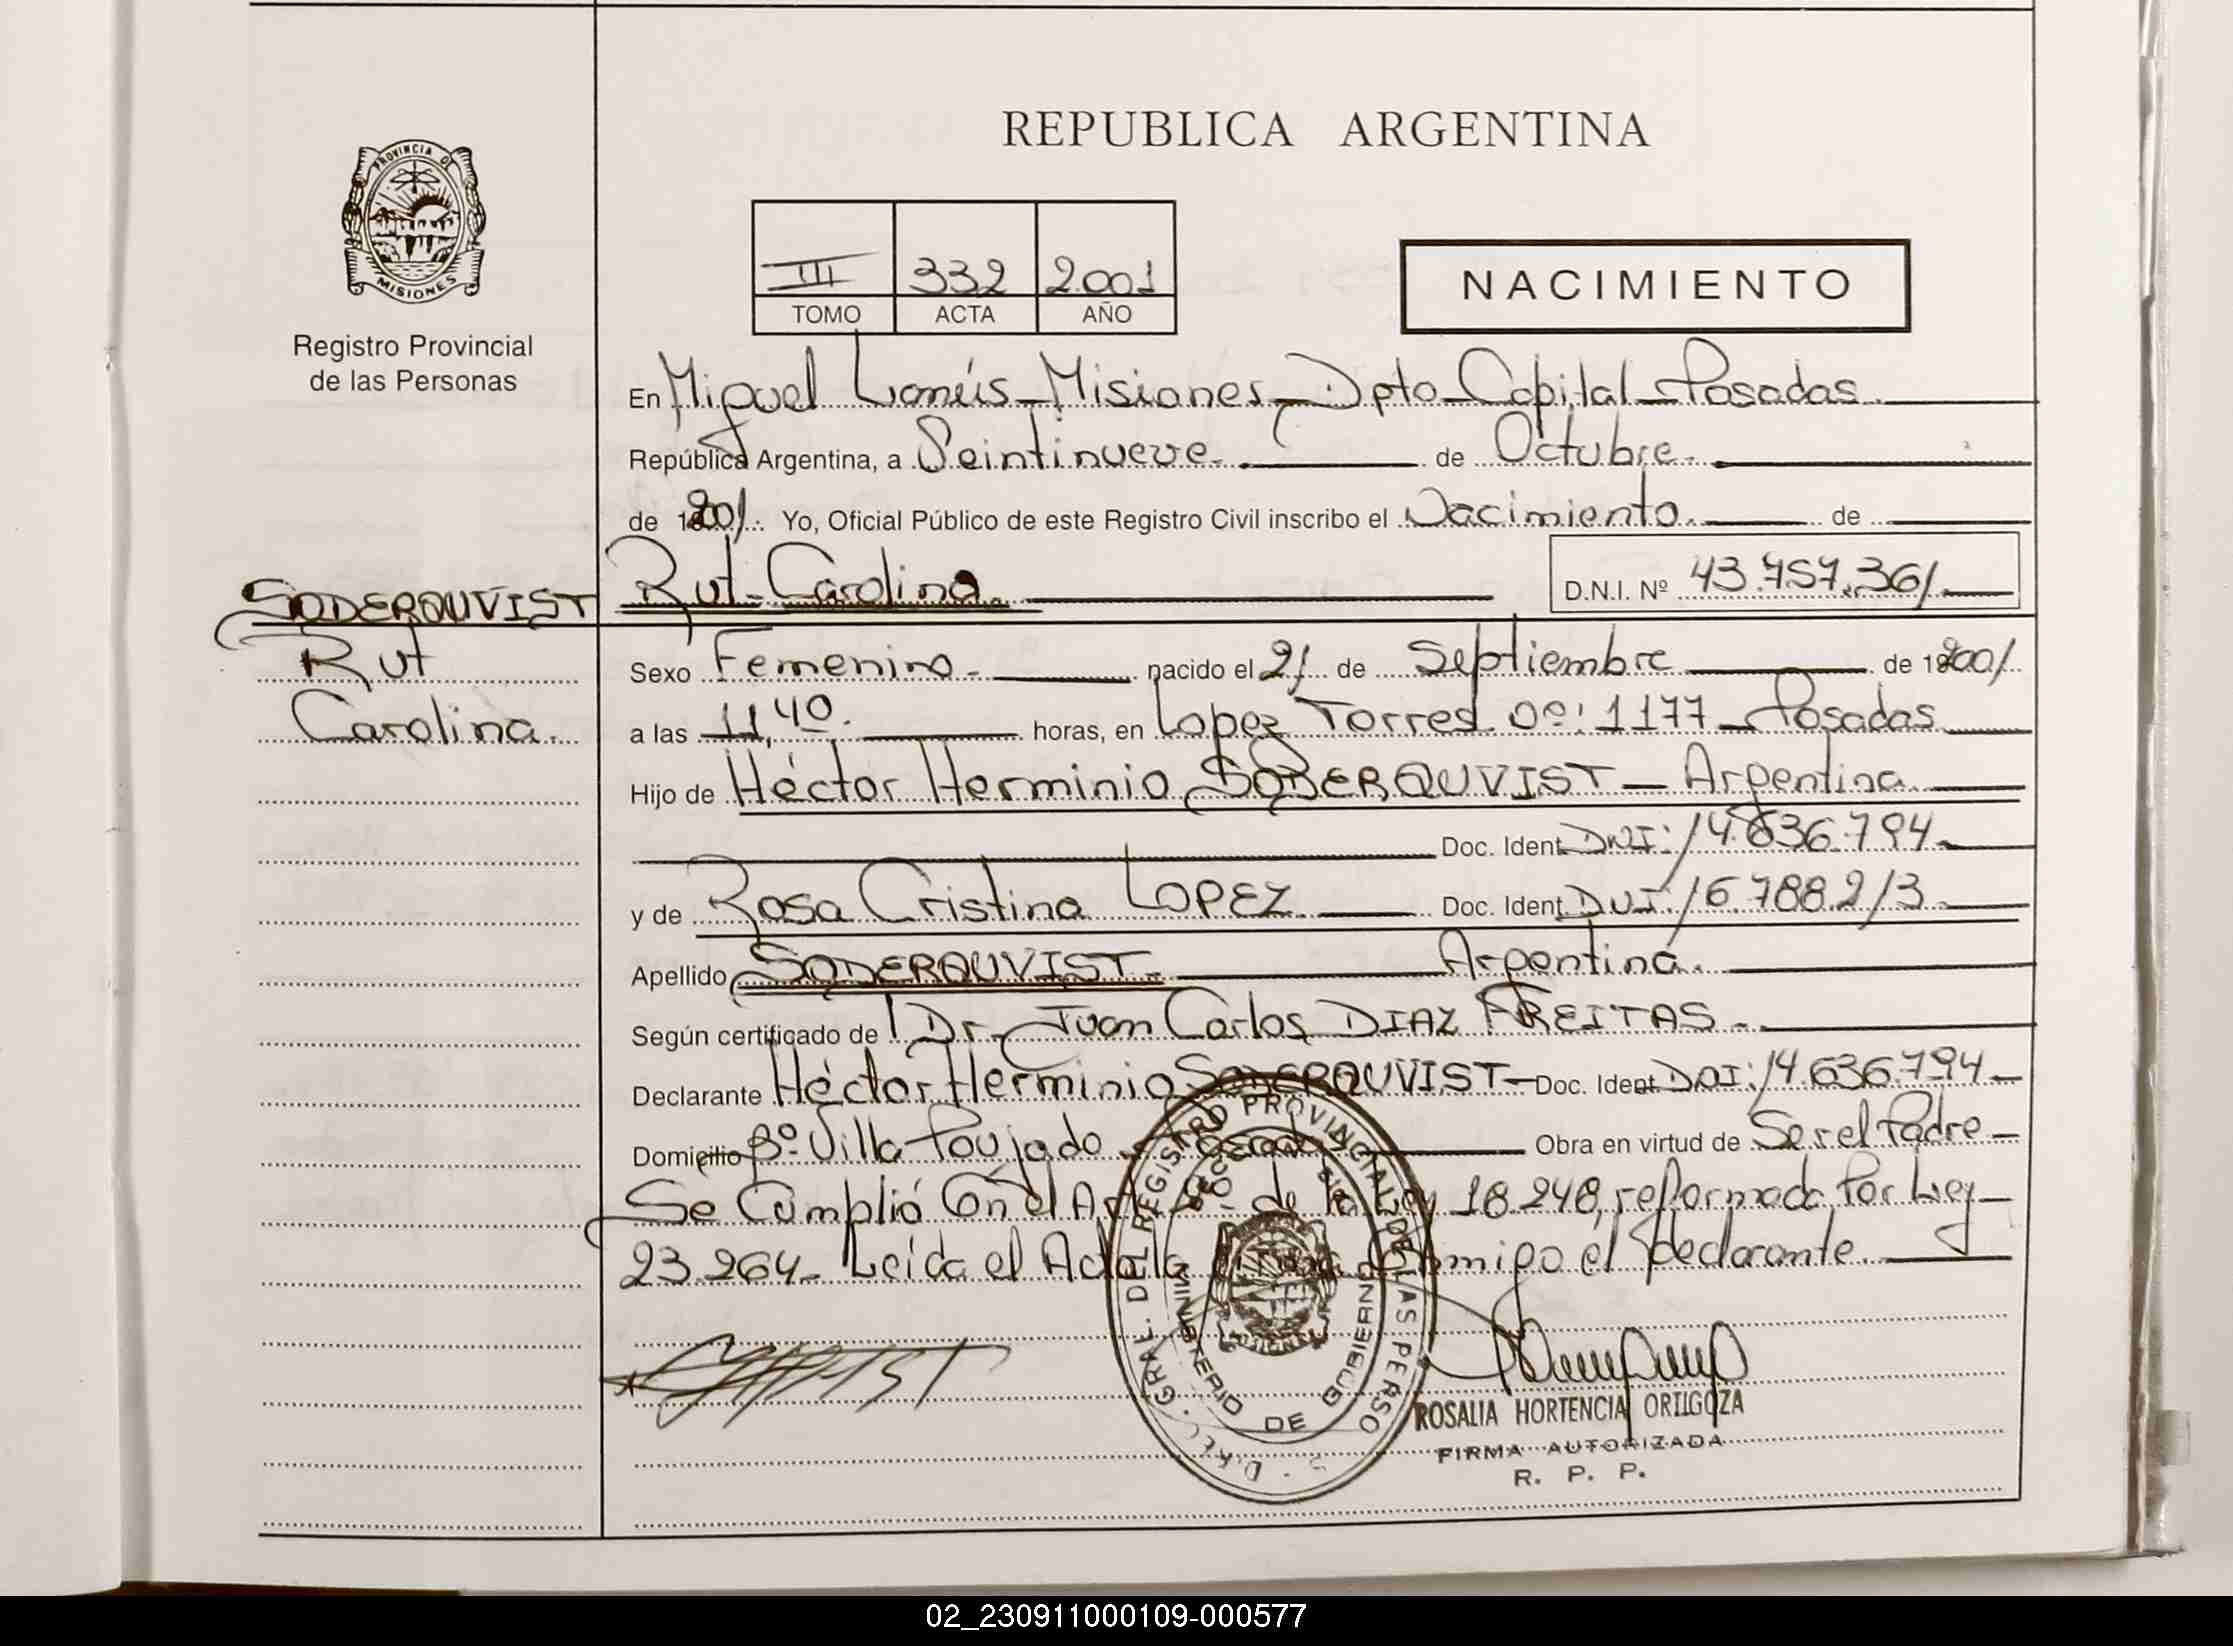 REPUBLICA ARGENTINA
PROVINCIA DE
MISIONES
Registro Provincial
de las Personas
III 332 2.001
TOMO ACTA AÑO
NACIMIENTO
En Miguel Lanús - Misiones - Dpto Capital - Posadas.
República Argentina, a Veintinueve. de Octubre.
de 2001. Yo, Oficial Público de este Registro Civil inscribo el Nacimiento. de
SODERQUVIST Rut Carolina. D.N.I. Nº 43.757.361
Rut
Carolina.
Sexo Femenino. nacido el 21 de Septiembre de 2001
a las 11,40. horas, en Lopez Torres nº: 1177 - Posadas
Hijo de Héctor Herminio SODERQUVIST - Argentina.
Doc. Ident. DNI: 14.636.794
y de Rosa Cristina LOPEZ Doc. Ident. DNI: 16.788.213
Apellido SODERQUVIST. Argentina.
Según certificado de Dr. Juan Carlos DIAZ FREITAS.
Declarante Héctor Herminio SODERQUVIST - Doc. Ident. DNI: 14.636.794
Domicilio Bº Villa Poujade Obra en virtud de Ser el Padre
Se Cumplió Con el Art de la Ley 18.248, reformada Por Ley
23.264. Leída el Acta la Conmigo el declarante.
DEL REGISTRO PROVINCIAL DE LAS PERSO
MINISTERIO DE GOBIERNO
MISIONES
ROSALIA HORTENCIA ORTIGOZA
FIRMA AUTORIZADA
R. P. P.
02_230911000109-000577